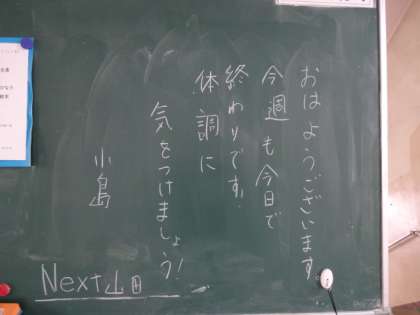 おはようございます
今週も今日で
終わりです。
体調に
気をつけましょう!
小島
Next山田